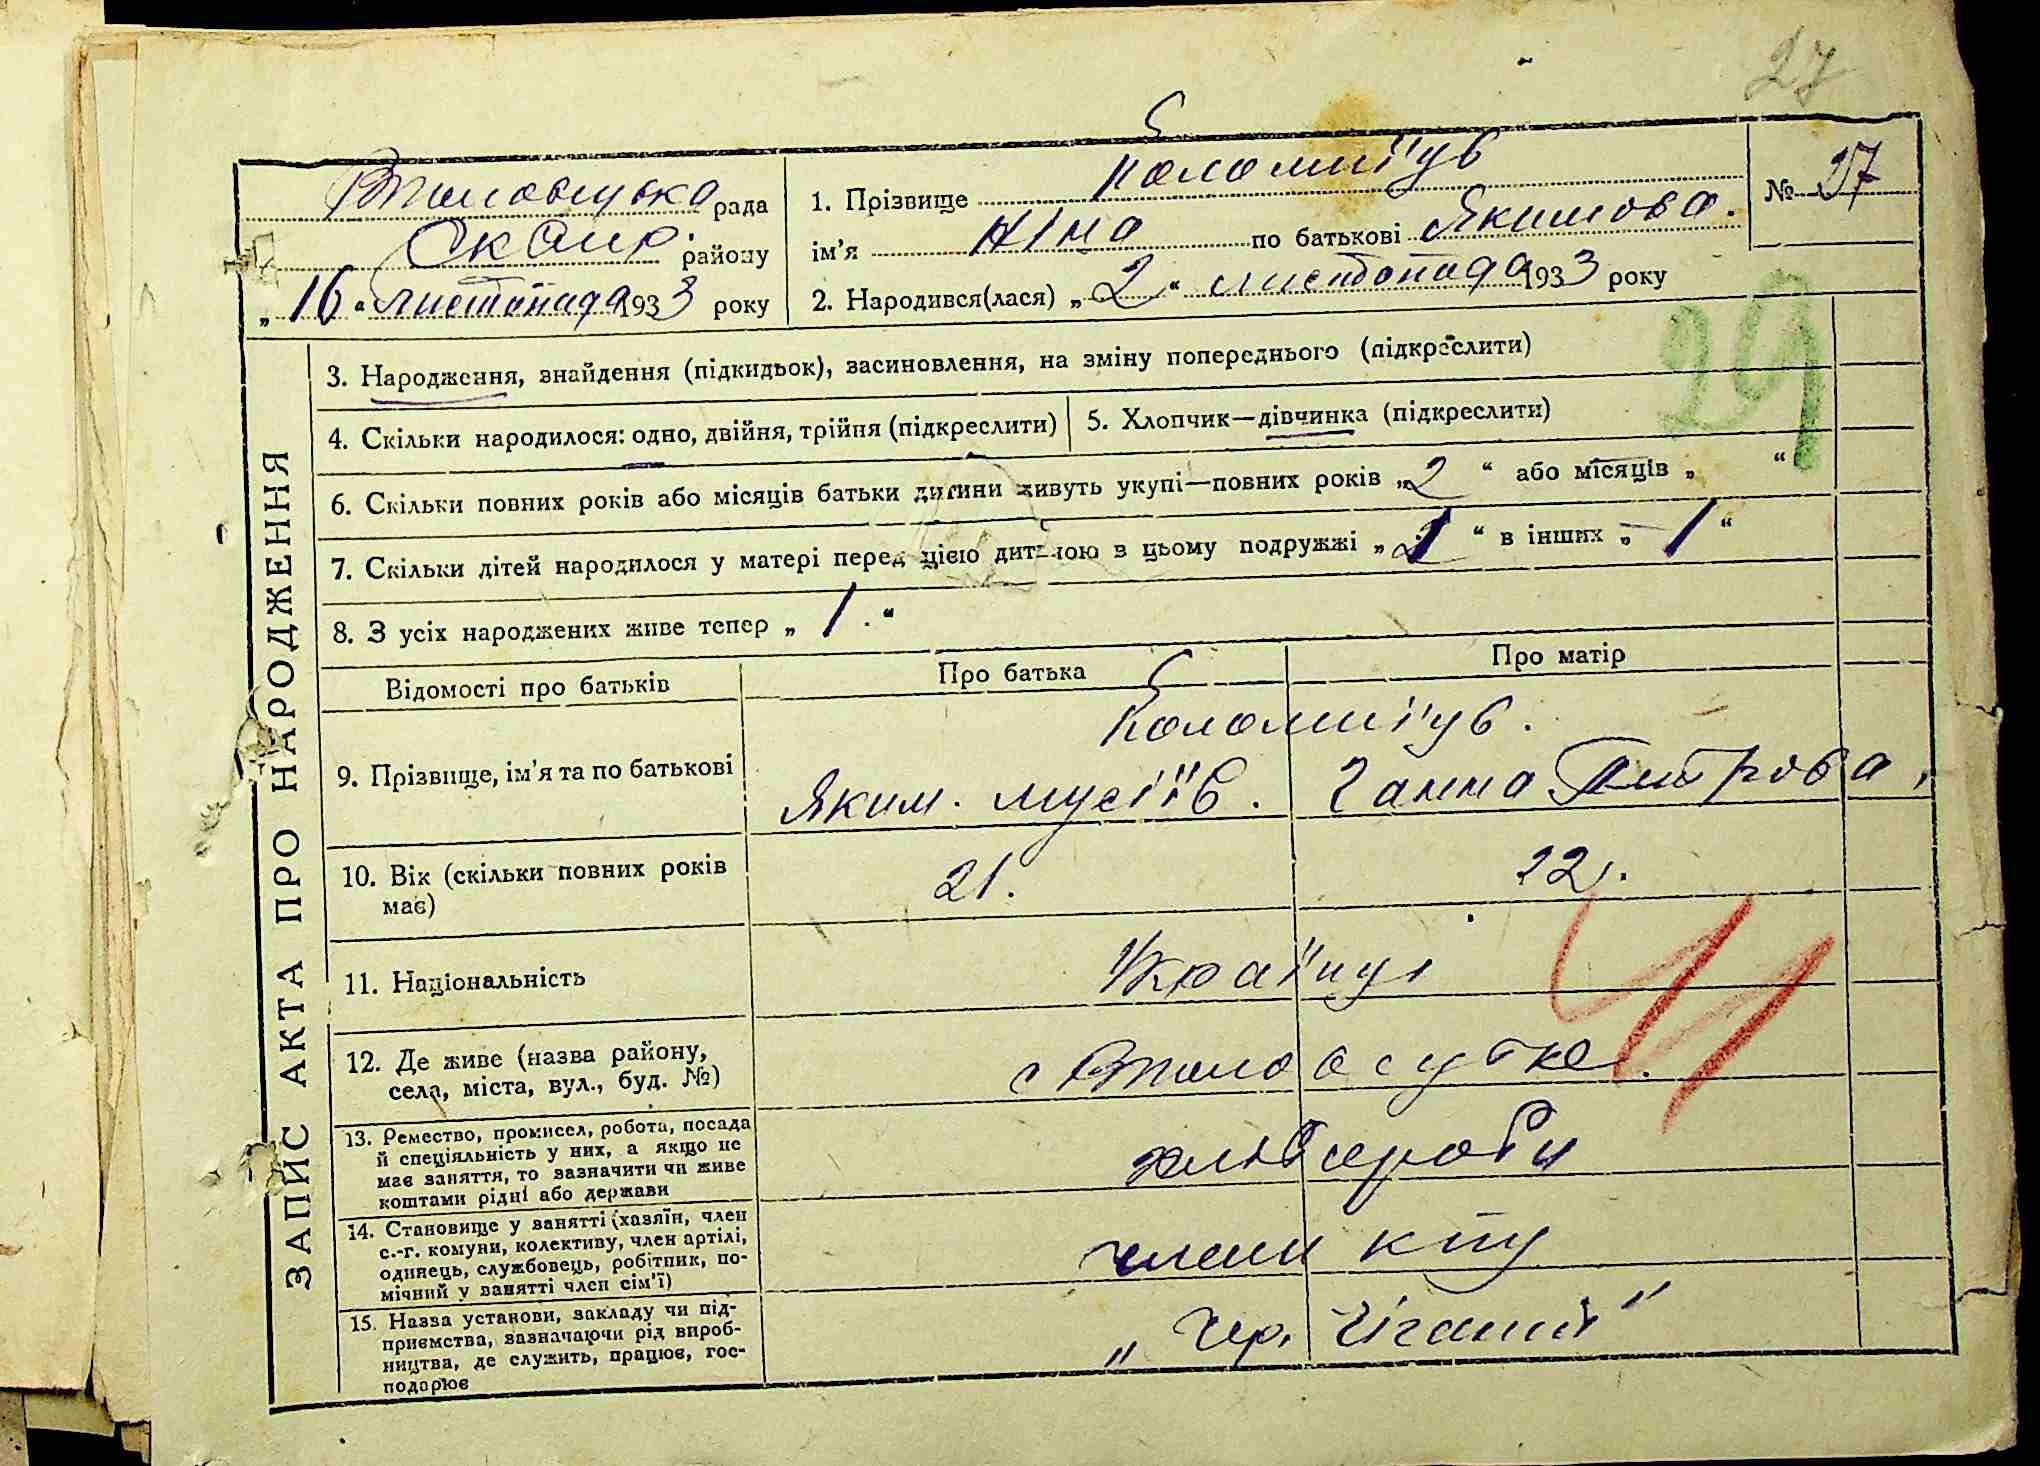 27
рада
Сквир. району
„16" листопада 1933 року
1. Прізвище Коломиїць
ім'я Ніна по батькові Якимова.
2. Народився(лася) „2" листопада 1933 року
№ 27
29
ЗАПИС АКТА ПРО НАРОДЖЕННЯ
3. Народження, знайдення (підкидьок), засиновлення, на зміну попереднього (підкреслити)
4. Скільки народилося: одно, двійня, трійня (підкреслити)
5. Хлопчик—дівчинка (підкреслити)
6. Скільки повних років або місяців батьки дитини живуть укупі—повних років „2" або місяців „ "
7. Скільки дітей народилося у матері перед цією дитиною в цьому подружжі „ " в інших „—1"
8. З усіх народжених живе тепер „1."
Відомості про батьків
Про батька
Про матір
9. Прізвище, ім'я та по батькові
Коломиїць.
Яким. Мусіїв.
Ганна Питрова,
10. Вік (скільки повних років
має)
21.
22.
11. Національність
Українці
12. Де живе (назва району,
села, міста, вул., буд. №)
с
13. Ремество, промисел, робота, посада
й спеціяльність у них, а якщо не
має заняття, то зазначити чи живе
коштами рідні або держави
хлібороби
14. Становище у занятті (хазяїн, член
с.-г. комуни, колективу, член артілі,
одинець, службовець, робітник, по-
мічний у занятті член сім'ї)
члени
15. Назва установи, закладу чи під-
приємства, зазначаючи рід вироб-
ництва, де служить, працює, гос-
подарює
„Чер. Гігант"